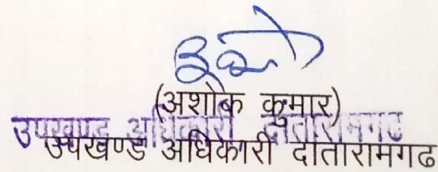 (अशोक कुमार)
उपखण्ड अधिकारी दातारामगढ
उपखण्ड अधिकारी दातारामगढ